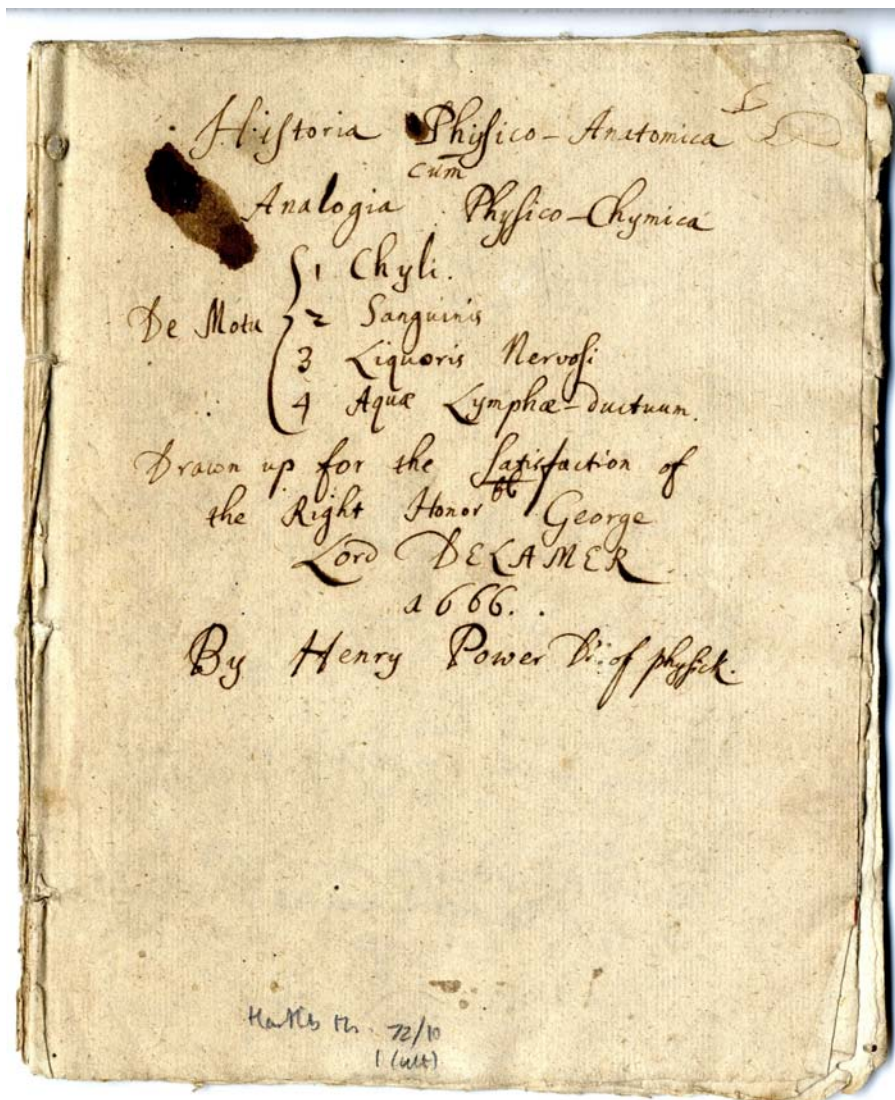 Historia Physico-Anatomica
cum
Analogia Physico-Chymica
1 Chyli.
De Motu 2 Sanguinis
3 Liquoris Nervosi
4 Aquæ Lymphæ-ductuum.
Drawn up for the Satisfaction of
the Right Honor ble George
Lord DELAMER
1666.
By Henry Power Dr. of physick.
72/10
1 (ult)